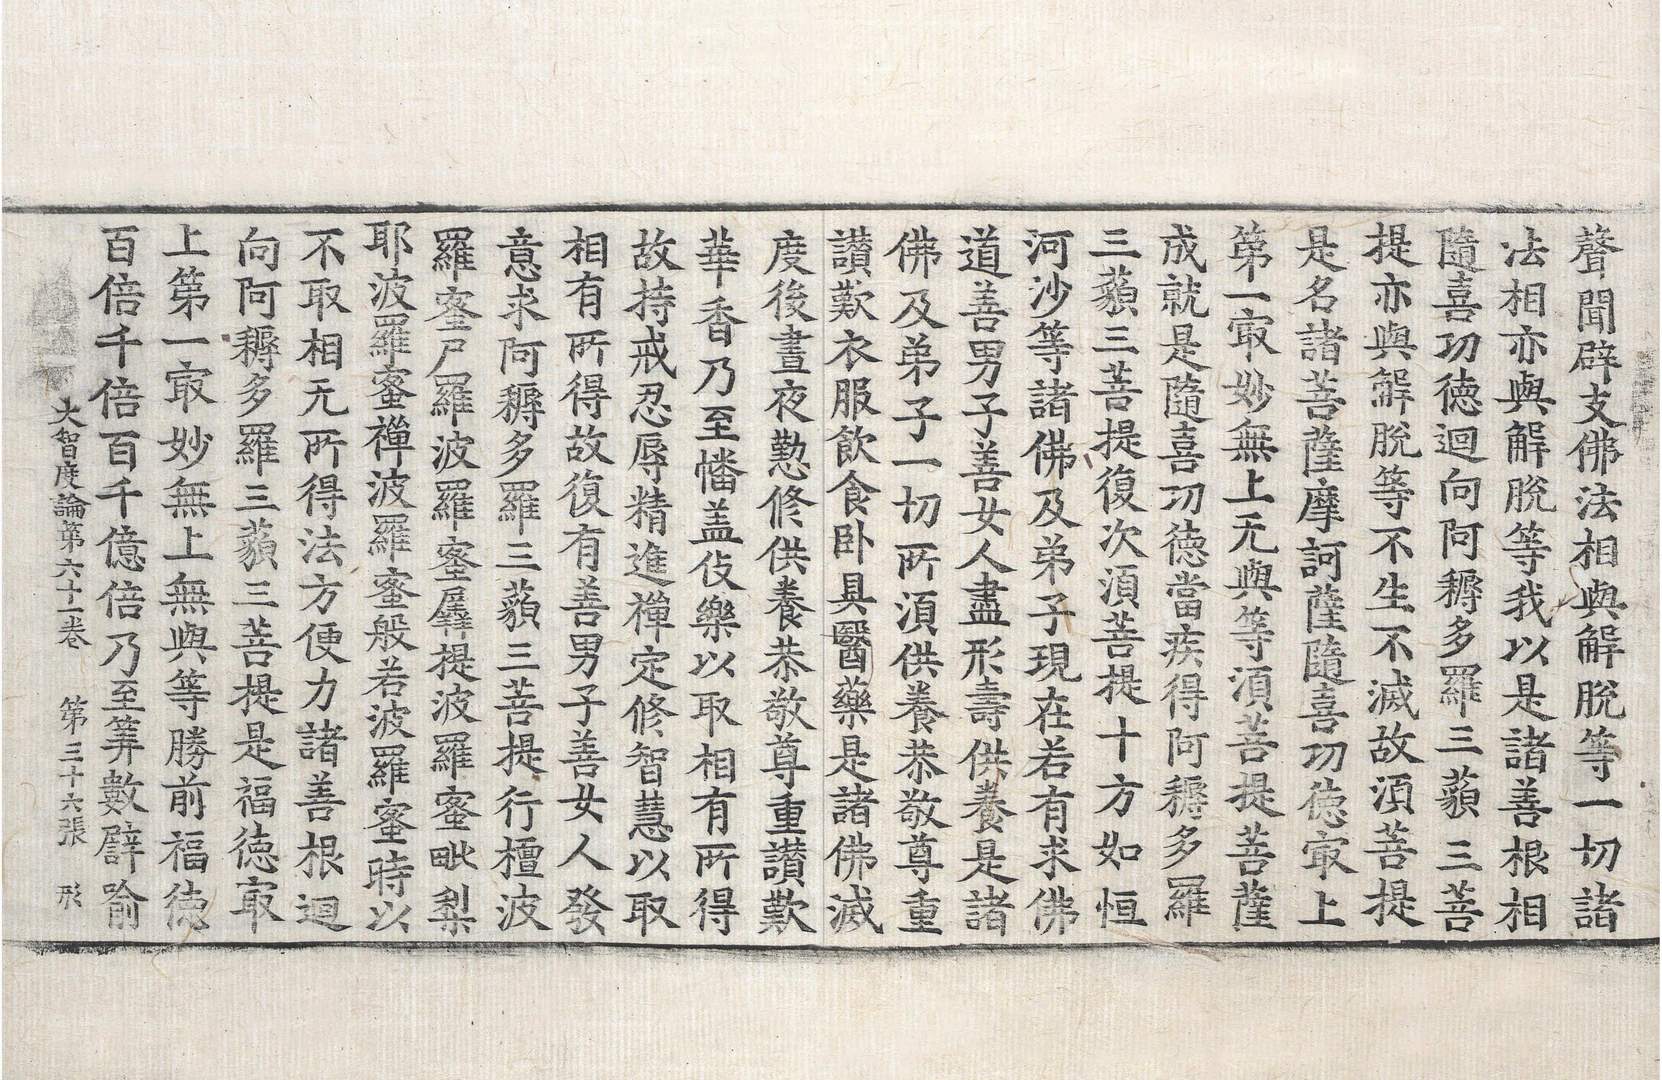 聲聞辟支佛法相與解脫等一切諸
法相亦與解脫等我以是諸善根相
隨喜功德迴向阿耨多羅三藐三菩
提亦與解脫等不生不滅故須菩提
是名諸菩薩摩訶薩隨喜功德㝡上
第一㝡妙無上无與等須菩提菩薩
成就是隨喜功德當疾得阿耨多羅
三藐三菩提復次須菩提十方如恒
河沙等諸佛及弟子現在若有求佛
道善男子善女人盡形壽供養是諸
佛及弟子一切所須供養恭敬尊重
讃歎衣服飲食卧具醫藥是諸佛滅
度後晝夜懃修供養恭敬尊重讃歎
華香乃至幡盖伎樂以取相有所得
故持戒忍辱精進禪定修智慧以取
相有所得故復有善男子善女人發
意求阿耨多羅三藐三菩提行檀波
羅蜜尸羅波羅蜜羼提波羅蜜毗梨
耶波羅蜜禪波羅蜜般若波羅蜜時以
不取相无所得法方便力諸善根迴
向阿耨多羅三藐三菩提是福德㝡
上第一㝡妙無上無與等勝前福德
百倍千倍百千億倍乃至筭數譬喻
大智度論第六十一卷 第三十六張 形